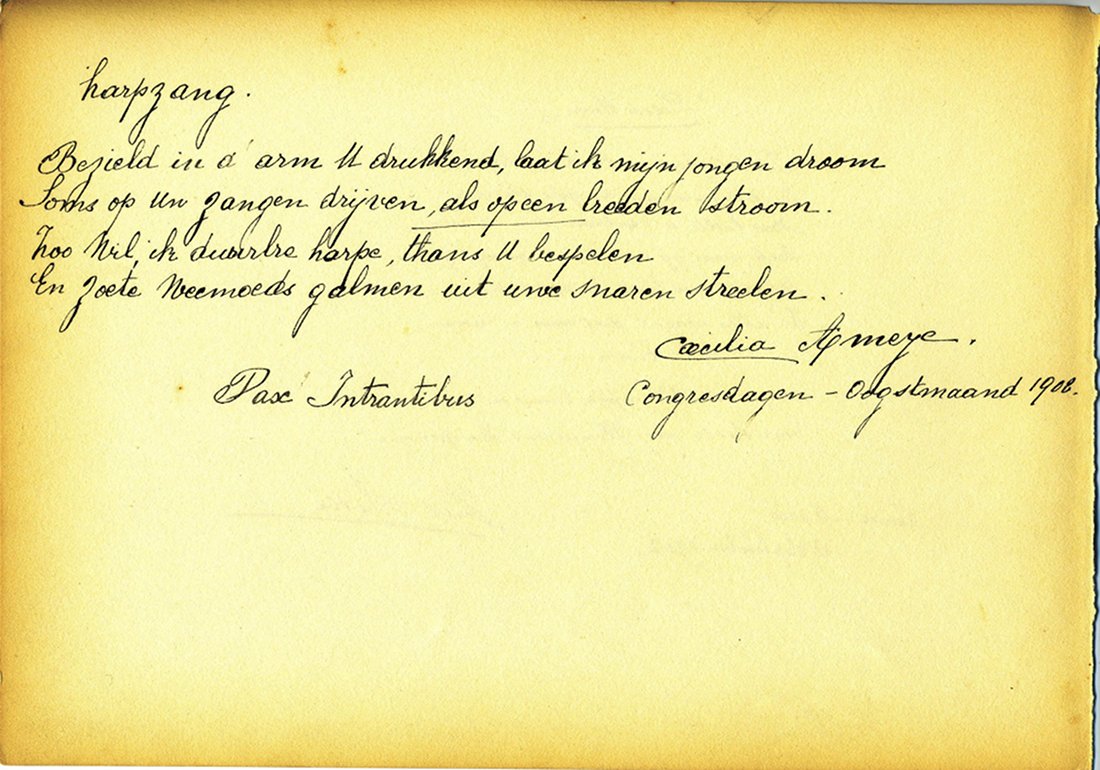 harpzang.
Bezield in d' arm U drukkend, laat ik mijn jongen droom
Soms op Uw zangen drijven, als op een breeden stroom.
Zoo Wil, ik duurbre harpe, thans U bespelen
En zoete Weemoeds galmen uit uwe snaren streelen.
Cæcilia Ameye.
Pax Intrantibus
Congresdagen - Oogstmaand 1908.